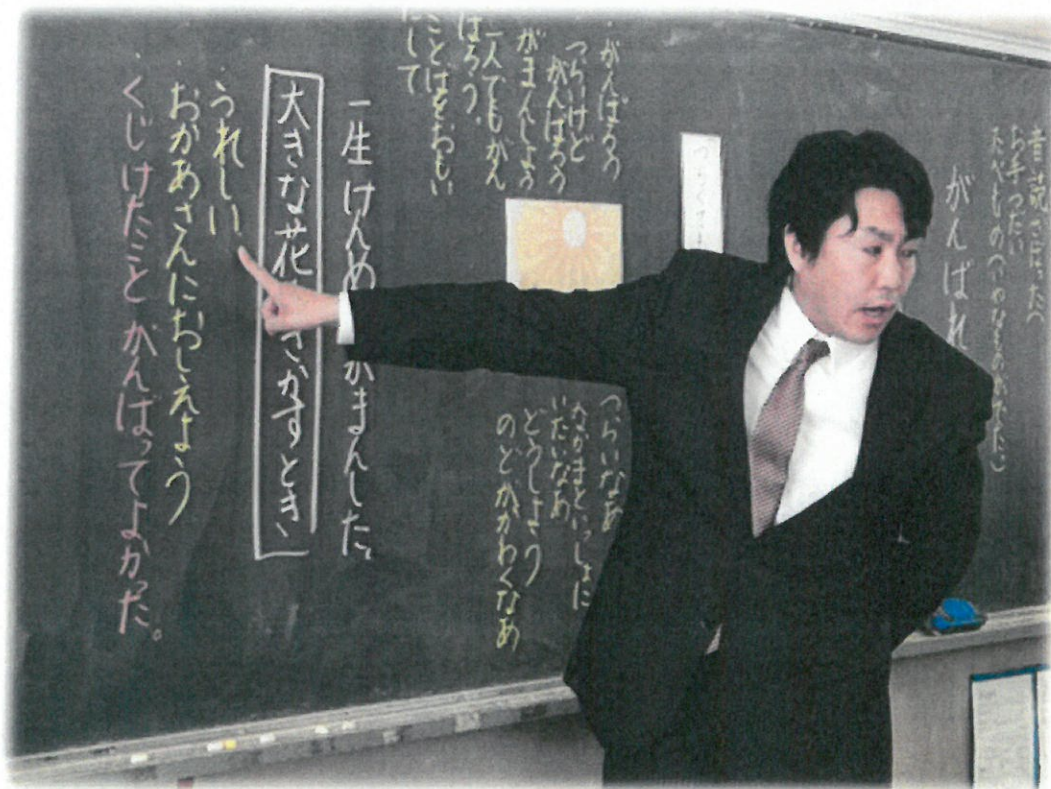 音読さぼったへ
お手つだい
たべもの
がんばれ
・がんばろう
つらいけど
がんばろう
がまんしよう
一人でもがん
ばろう。
ことばをおもい
だして
つらいなあ
なかまといっしょに
いたいなあ
どうしよう
のどがかわくなあ
一生けんめ がまんした。
大きな花 さがすとき、
・うれしい。
・おかあさんにおしえよう
・くじけたこと がんばってよかった。